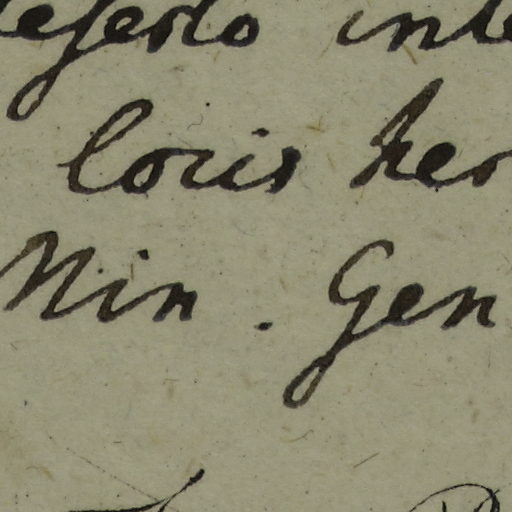 deserto inte
locis her
Min. Gen